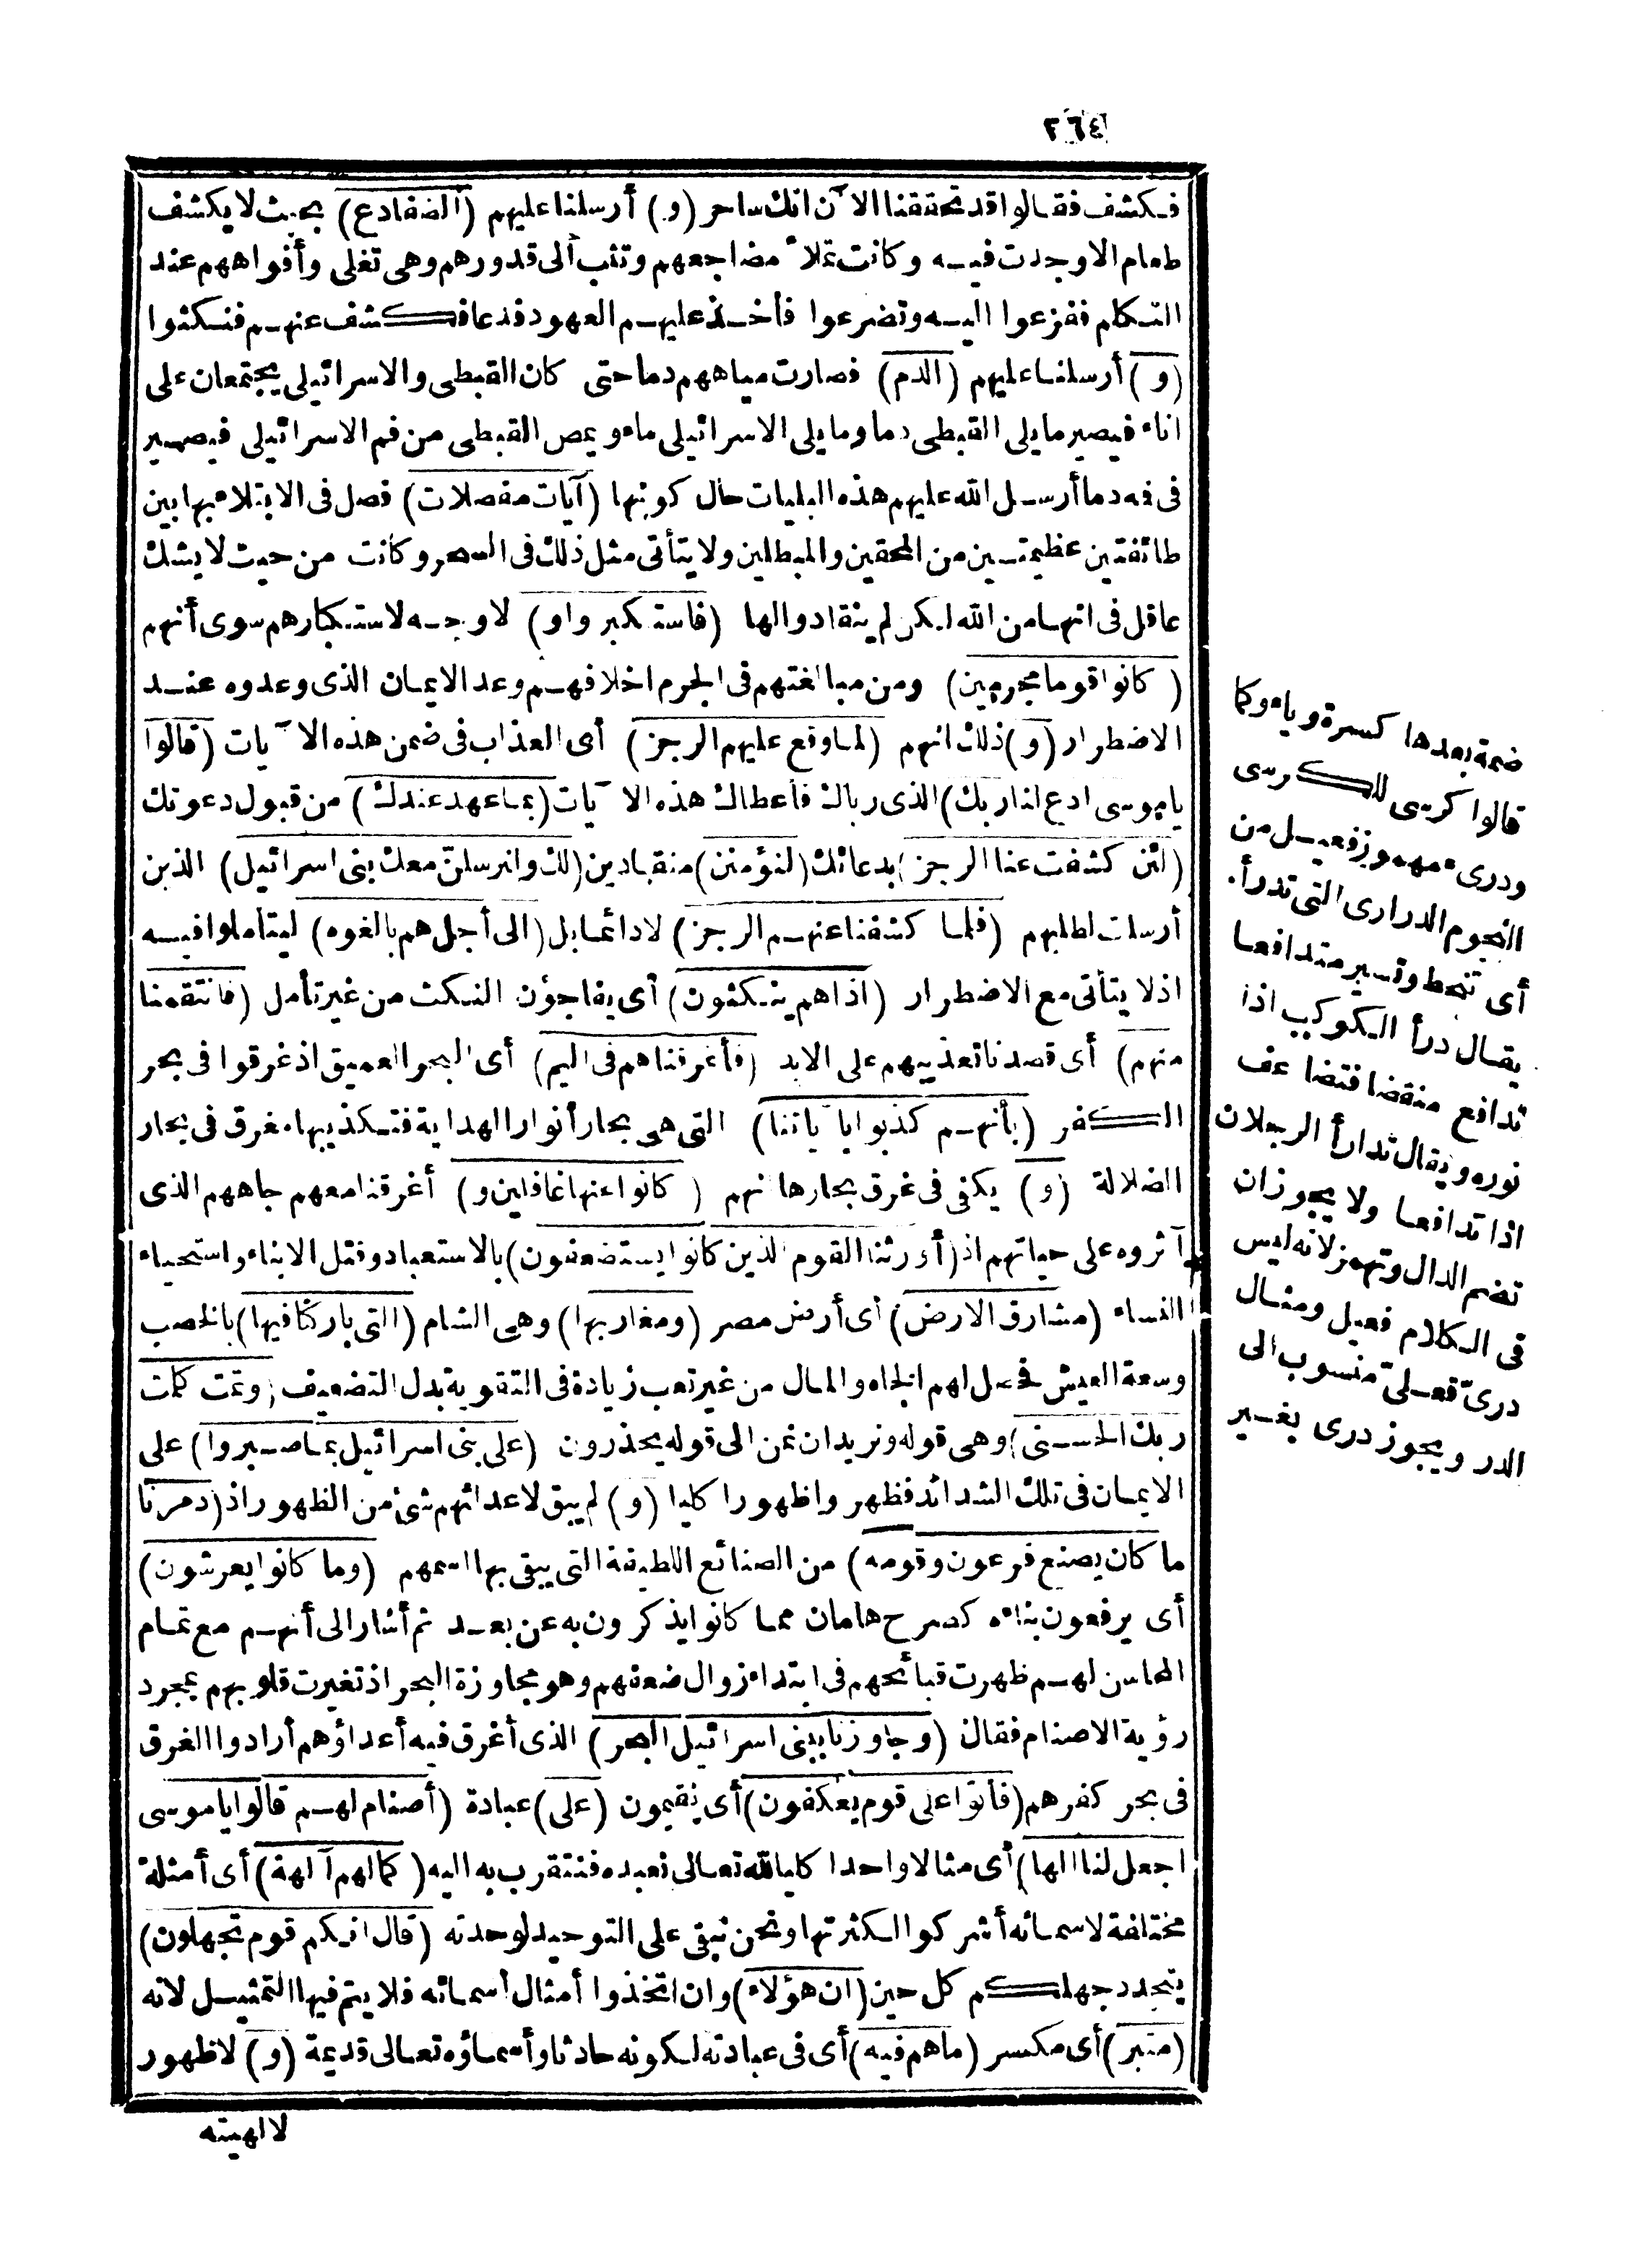 ٢٦٤
فكشف فقالوا قد تحققنا الآن انك ساحر (و) أرسلنا عليهم (الضفادع) بحيث لا يكشف
طعام الا وجدت فيه وكانت تملأ مضاجعهم وتثب الى قدورهم وهى تغلى وأفواههم عند
التكلم ففزعوا اليه وتضرعوا فأخذ عليهم العهود فدعا فكشف عنهم فنكثوا
(و) أرسلنا عليهم (الدم) فصارت مياههم دما حتى كان القبطى والاسرائيلى يجتمعان على
اناء فيصير ما يلى القبطى دما وما يلى الاسرائيلى ماء ويمص القبطى من فم الاسرائيلى فيصير
فى فه دما أرسل الله عليهم هذه البليات حال كونها (آيات مفصلات) فصل فى الابتلاء بها بين
طائفتين عظيمتين من المحقين والمبطلين ولا يتأتى مثل ذلك فى السحر وكانت من حيث لا يشك
عاقل فى انها من الله لكن لم ينقادوا لها (فاستكبروا و) لا وجه لاستكبارهم سوى أنهم
(كانوا قوما مجرمين) ومن مبالغتهم فى الجرم اخلافهم وعد الايمان الذى وعدوه عند
الاضطرار (و) ذلك انهم (لما وقع عليهم الرجز) أى العذاب فى ضمن هذه الآيات (قالوا
ياموسى ادع لنا ربك) الذى رباك فأعطاك هذه الآيات (بما عهد عندك) من قبول دعوتك
(لئن كشفت عنا الرجز) بدعائك (لنؤمنن) منقادين (لك ولنرسلنّ معك بنى اسرائيل) الذين
أرسلت لطلبهم (فلما كشفنا عنهم الرجز) لا دائما بل (الى أجل هم بالغوه) ليتأملوا فيه
اذ لا يتأتى مع الاضطرار (اذا هم ينكثون) أى يفاجؤن النكث من غير تأمل (فانتقمنا
منهم) أى قصدنا تعذيبهم على الابد (فأغرقناهم فى اليم) أى البحر العميق اذ غرقوا فى بحر
الكفر (بأنهم كذبوا بآياتنا) التى هى بحار أنوار الهداية فتكذيبها مغرق فى بحار
الضلالة (و) يكفى فى غرق بحارها نهم (كانوا عنها غافلين و) أغرقنا معهم جاههم الذى
آثروه على حياتهم اذ (أورثنا القوم الذين كانوا يستضعفون) بالاستعباد وقتل الابناء واستحياء
النساء (مشارق الارض) أى أرض مصر (ومغاربها) وهى الشام (التى باركنا فيها) بالخصب
وسعة العيش فحصل لهم الجاه والمال من غير تعب زيادة فى التقوية بدل التضعيف (وتمت كلمت
ربك الحسنى) وهى قوله ونريد ان نمن الى قوله يحذرون (على بنى اسرائيل بما صبروا) على
الايمان فى تلك الشدائد فظهروا ظهورا كليا (و) لم يبق لاعدائهم شئ من الظهور اذ (دمرنا
ما كان يصنع فرعون وقومه) من الصنائع اللطيفة التى يبقى بها اسمهم (وما كانوا يعرشون)
أى يرفعون بناءه كصرح هامان مما كانوا يذكرون به عن بعد ثم أشار الى أنهم مع تمام
المحاسن لهم ظهرت قبائحهم فى ابتداء زوال ضعفهم وهو مجاوزة البحر اذ تغيرت قلوبهم بمجرد
رؤية الاصنام فقال (وجاوزنا ببنى اسرائيل البحر) الذى أغرق فيه أعداؤهم أرادوا الغرق
فى بحر كفرهم (فأتوا على قوم يعكفون) أى يقيمون (على) عبادة (أصنام لهم قالوا ياموسى
اجعل لنا الها) أى مثالا واحدا كليا لله تعالى نعبده فنتقرب به اليه (كما لهم آلهة) أى أمثلة
مختلفة لاسمائه أشركوا لكثرتها ونحن نبقى على التوحيد لوحدته (قال انكم قوم تجهلون)
يتجدد جهلكم كل حين (ان هؤلاء) وان اتخذوا أمثال أسمائه فلا يتم فيها التمثيل لانه
(متبر) أى مكسر (ما هم فيه) أى فى عبادته لكونه حادثا وأسماؤه تعالى قديمة (و) لا ظهور
لالهيته
ضمة بعدها كسرة وياء وكما
قالوا كرسى للكرسى
ودرىء مهموز فعيل من
النجوم الدرارى التى تدرأ
أى تنحط وتسير متدافعا
يقال درأ الكوكب اذا
تدافع منقضا فتضاعف
نوره ويقال تدارأ الرجلان
اذا تدافعا ولا يجوز ان
تضم الدال وتهمز لانه ليس
فى الكلام فعيل ومثال
درىّ فعلىّ منسوب الى
الدر ويجوز درى بغير